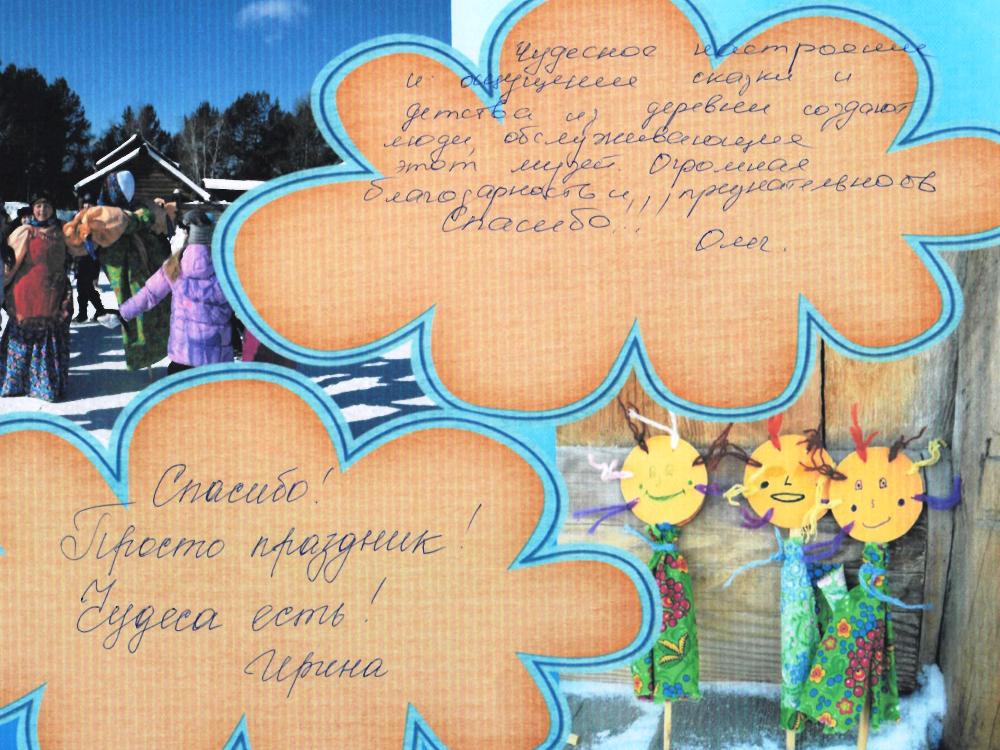 Чудесное настроение
и ощущение сказки и
детства из деревни создают
люди, обслуживающие
этот музей. Огромная
благодарность и,,, признательность
Спасибо...

Спасибо!
Просто праздник!
Чудеса есть!
Ирина